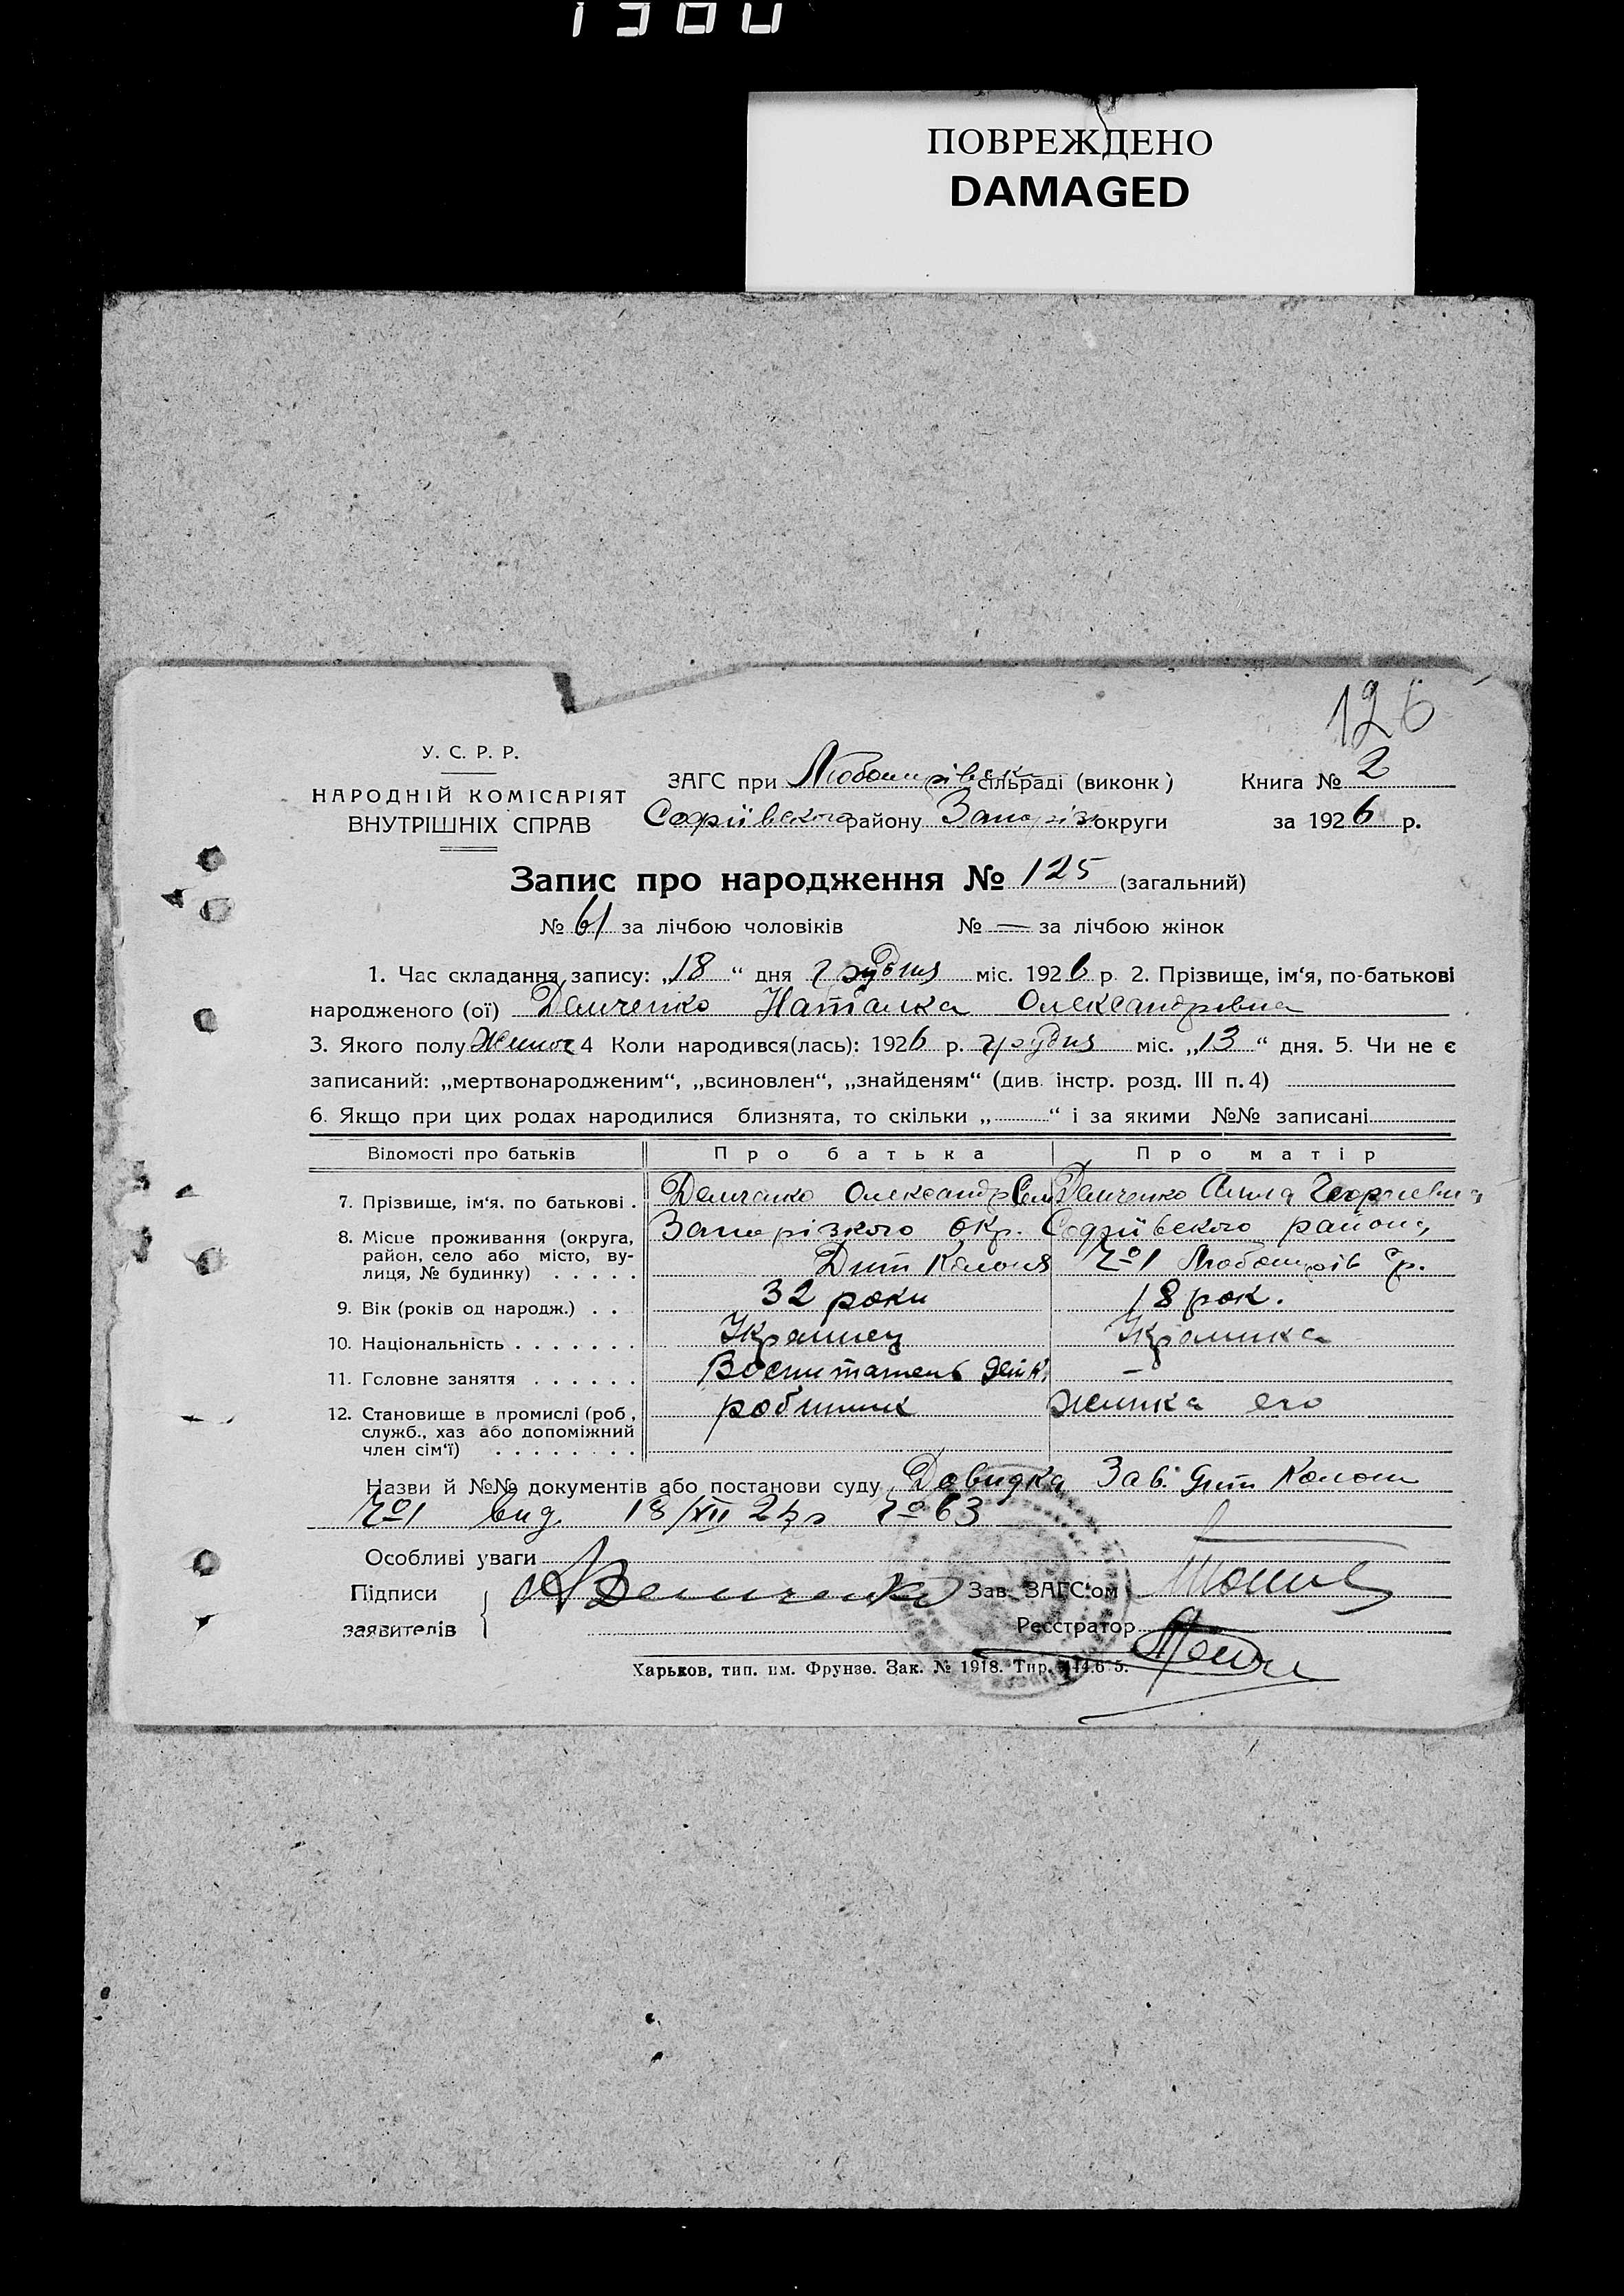 ПОВРЕЖДЕНО
DAMAGED
126
У. С. Р. Р.
НАРОДНІЙ КОМІСАРІЯТ
ВНУТРІШНІХ СПРАВ
ЗАГС при сільраді (виконк)
Софіївського району Запоріз округи
Книга № 2
за 1926 р.
Запис про народження № 125 (загальний)
№ 61 за лічбою чоловіків № — за лічбою жінок
1. Час складання запису: „18“ дня грудня міс. 1926 р 2. Прізвище, ім'я, по-батькові
народженого (ої) Демченко Наталка Олександрівна
3. Якого полу Жиноч 4 Коли народився(лась): 1926 р. грудня міс. „13“ дня. 5. Чи не є
записаний: „мертвонародженим“, „всиновлен“, „знайденям“ (див. інстр. розд. III п. 4)
6. Якщо при цих родах народилися близнята, то скільки „ “ і за якими №№ записані
Відомості про батьків Про батька Про матір
7. Прізвище, ім'я, по батькові . Демченко Олександр Демченко
8. Місце проживання (округа, район, село або місто, вулиця, № будинку) . . . . . Запорізкого окр. Софіївского района,
Дит Колонія №1
9. Вік (років од народж.) . . 32 роки 18 рок.
10. Національність . . . . . . . Украинец Украинка
11. Головне заняття . . . . . . Воспитатель –
12. Становище в промислі (роб., служб., хаз або допоміжний член сім'ї) . . . . . . . . робитник жинка его
Назви й №№ документів або постанови суду Довидка Зав. Дит Колони
№1 вид. 18/XII 26 р №63
Особливі уваги
Підписи
заявителів
Демченко
Зав. ЗАГС'ом
Реєстратор
Харьков, тип. им. Фрунзе. Зак. № 1918. Тир.